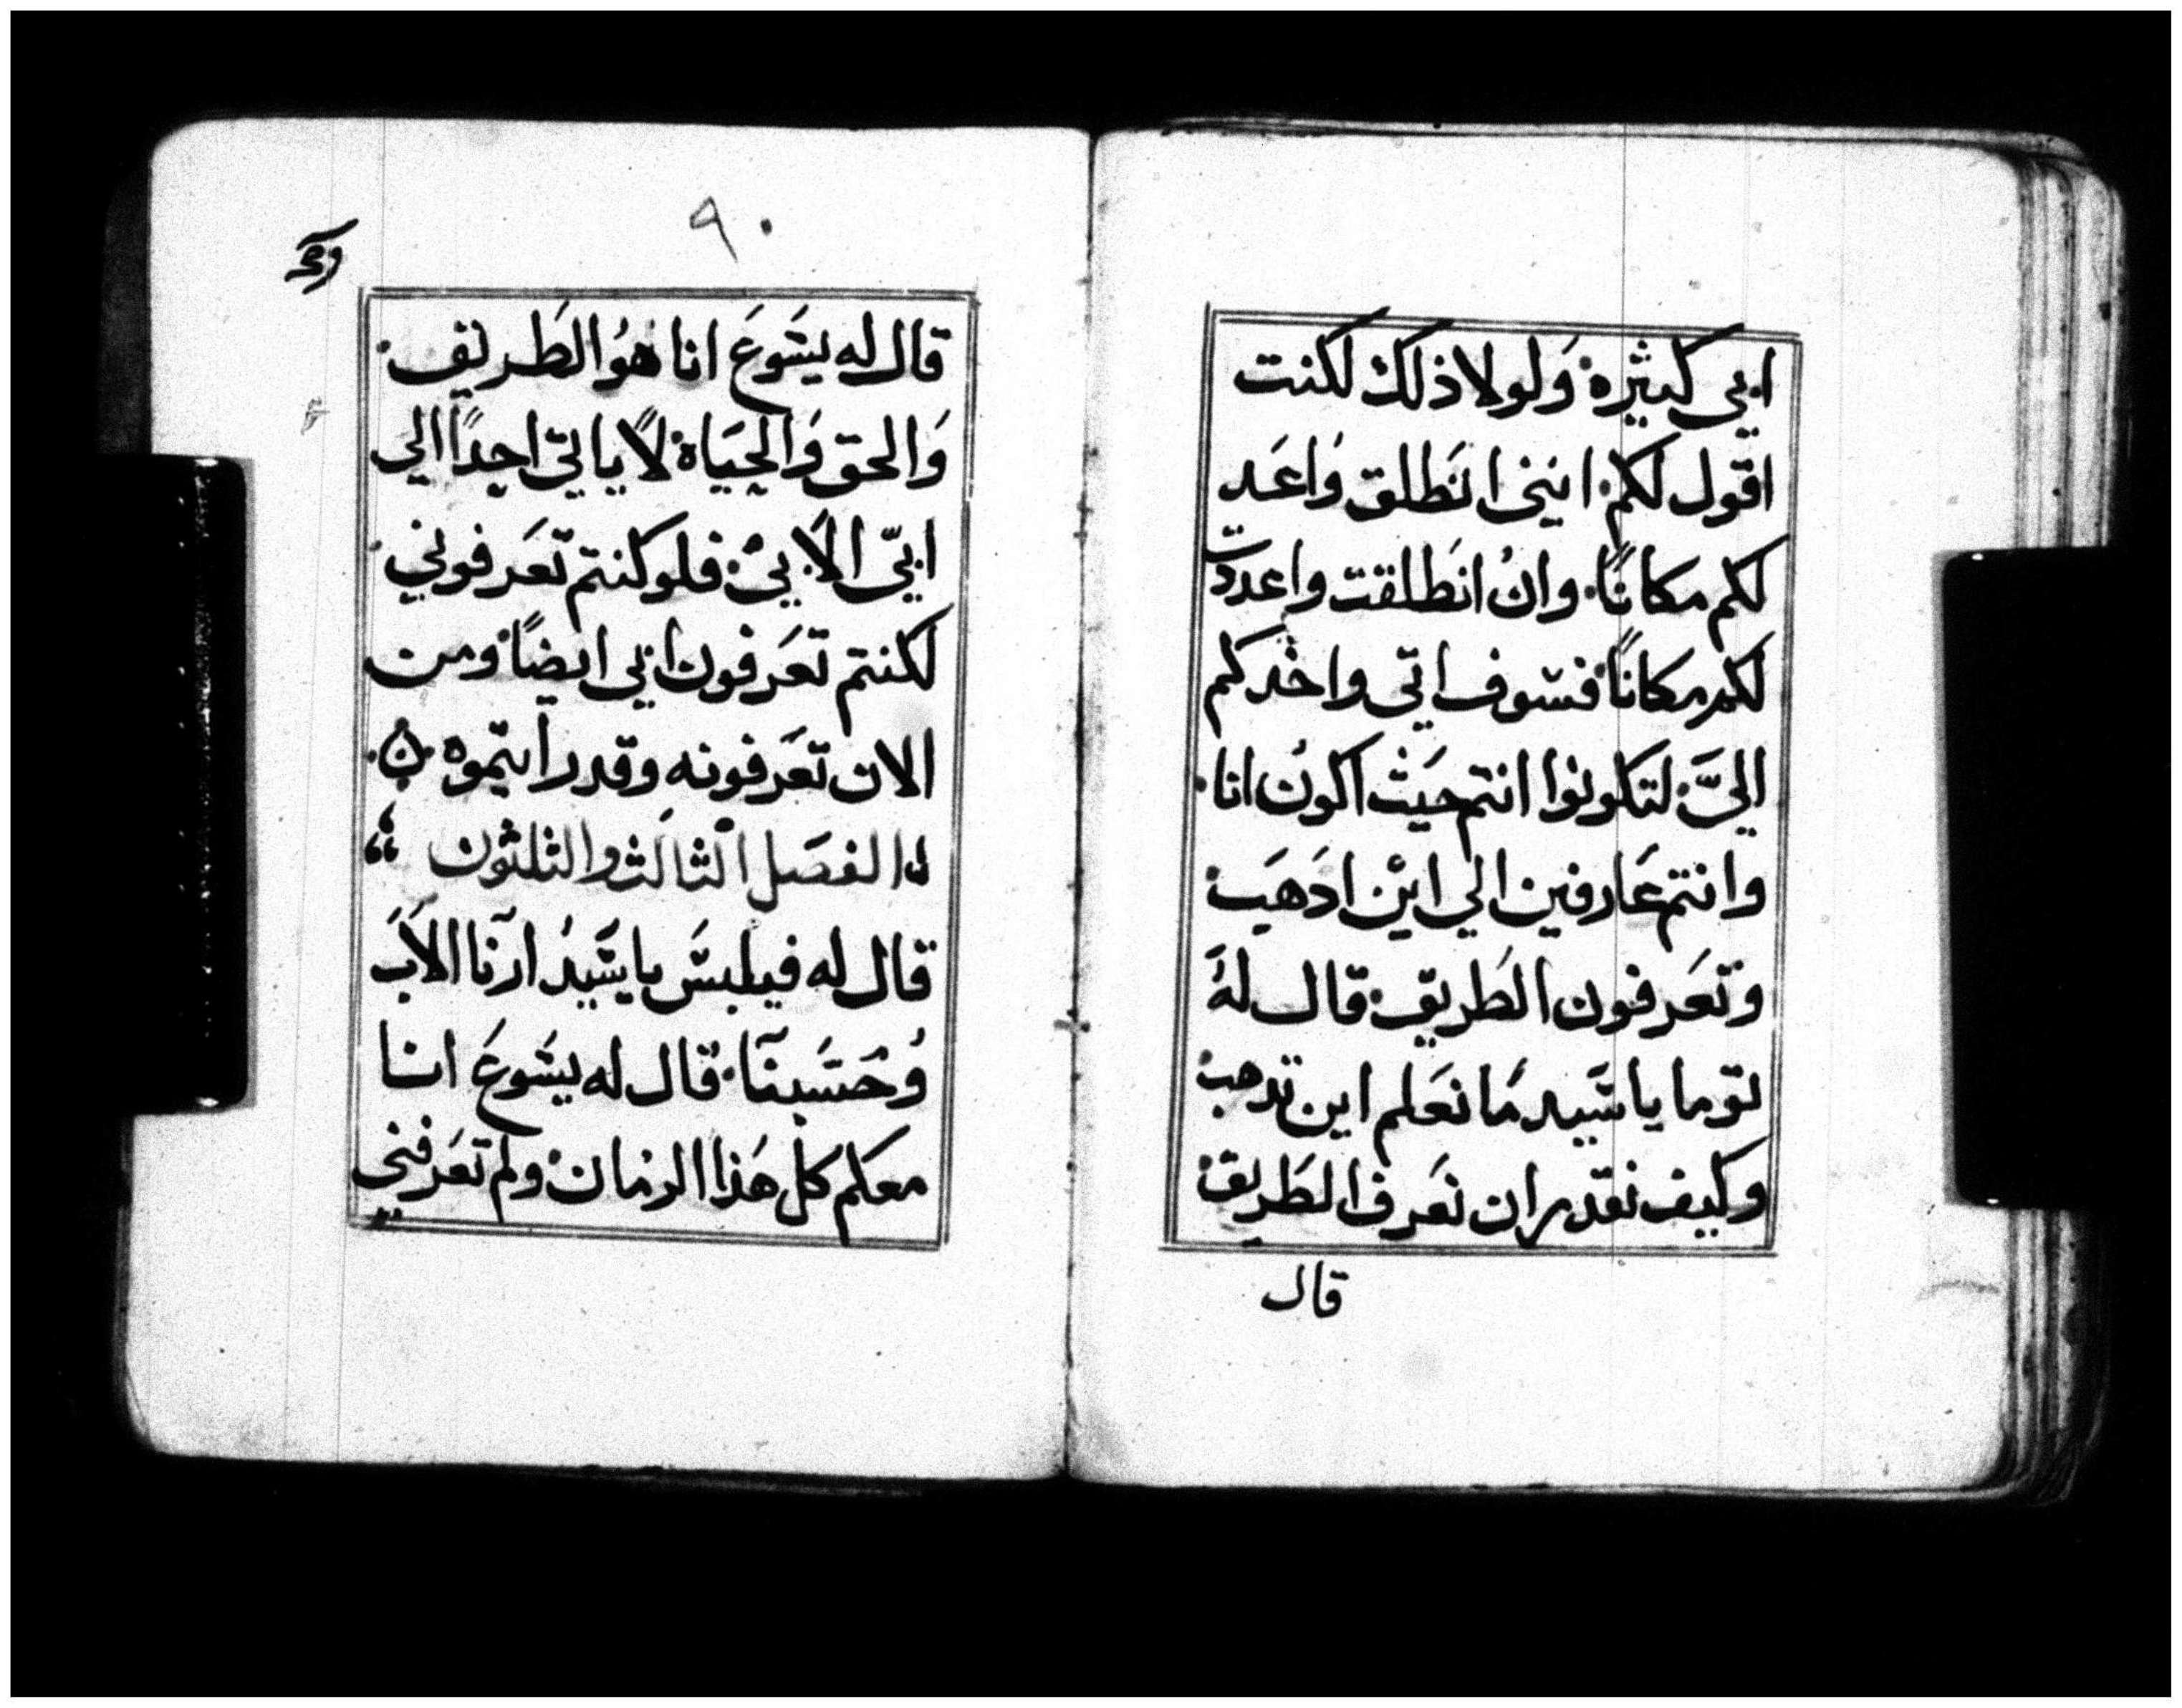 ابي كثيرة وَلولا ذلك لكنت
اقول لكم انني انَطلق وَاعَد
لكم مكانًا وان انَطلقت واعددت
لكم مكانًا فسَوف اتي واخدكم
اليَّ لتكونوا انتم حيَث اكون انا
وانتم عَارفين الي ايْن ادَهَب
وَتعَرفون الطَريق قال لهُ
توما يا سَيد مَا نعَلم اين تدهب
وكيف نقدر ان نعَرف الطَريق
قال
٩٠
قال له يسَوعَ انا هوُ الطَريق
وَالحق وَالحيَاة لاَ ياتي احدًا الي
ابي الاَ بيْ فلو كنتم تعَرفوني
لكنتم تعَرفون ابي ايضًا ومن
الان تعَرفونه وقد رايتموه
الفصَل الثالث والثلثون
قال له فيلبسَ يا سَيدُ ارنا الاَبَ
وُحَسَبنا قال له يسَوعَ انا
معكم كل هَذا الزمان ولم تعَرفني